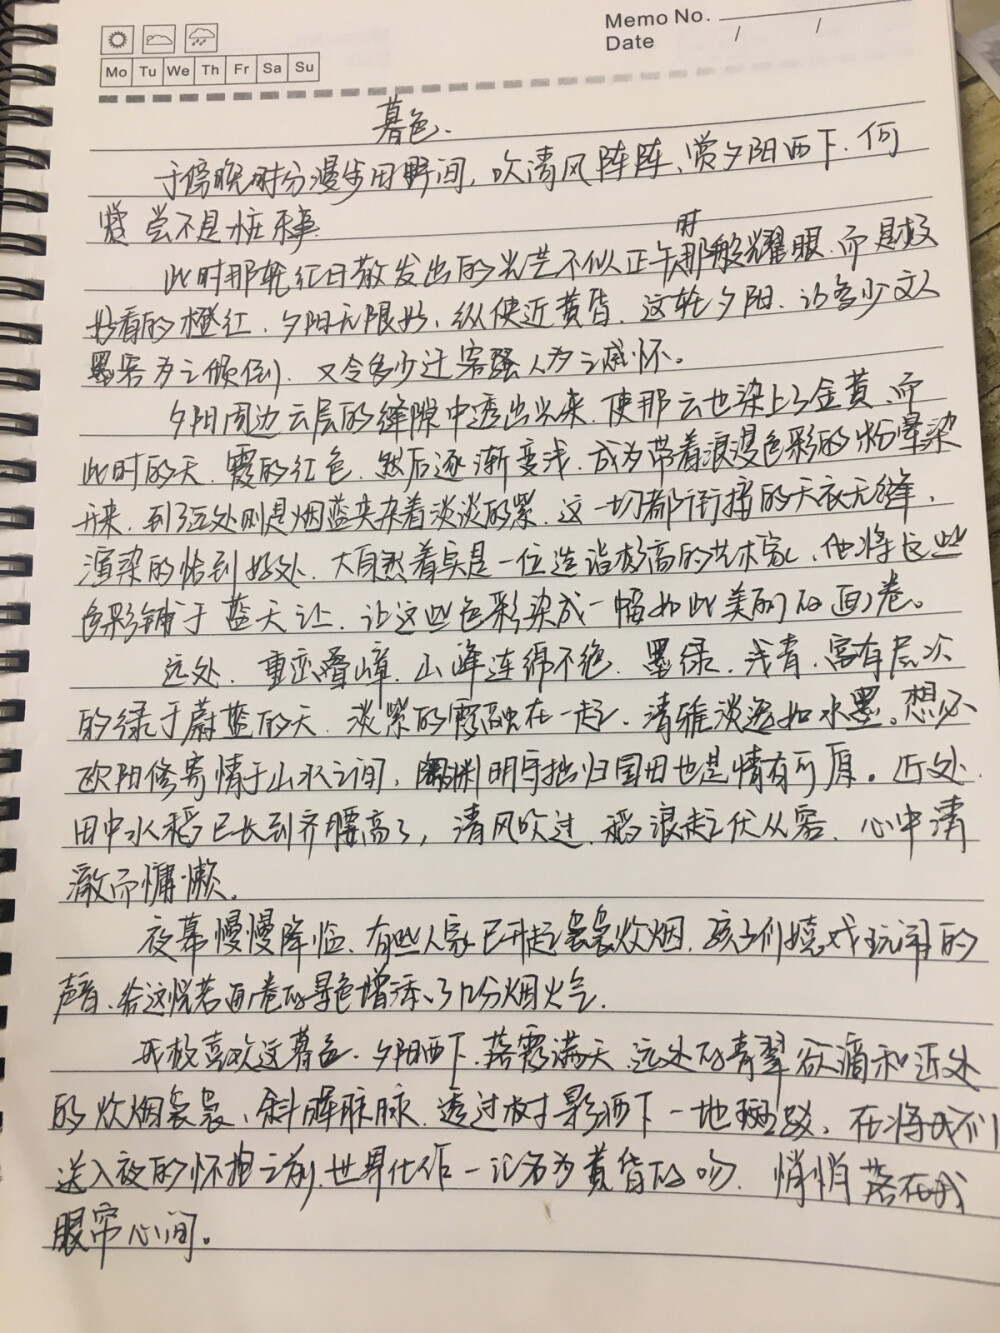 Memo No.
Date / /
Mo Tu We Th Fr Sa Su
暮色.
于傍晚时分漫步田野间，吹清风阵阵、赏夕阳西下.何
尝不是桩乐事.
此时那轮红日散发出的光芒不似正午时那般耀眼.而是极
好看的橙红.夕阳无限好、纵使近黄昏.这轮夕阳.让多少文人
墨客为之倾倒.又令多少迁客骚人为之感怀。
夕阳周边云层的缝隙中透出光来.使那云也染上了金黄.而
此时的天.霞的红色.然后逐渐变浅.成为带着浪漫色彩的粉晕染
开来.到了远处则是烟蓝夹杂着淡淡的紫.这一切都衔接的天衣无缝、
渲染的恰到好处.大自然着实是一位造诣极高的艺术家.他将这些
色彩铺于蓝天让.让这些色彩染成一幅如此美丽的画卷。
远处.重峦叠嶂.山峰连绵不绝.墨绿.浅青.富有层次
的绿于蔚蓝的天.淡紫的霞融在一起.清雅淡逸如水墨。想必
欧阳修寄情于山水之间，陶渊明守拙归园田也是情有可原。近处.
田中水稻已长到齐腰高了，清风吹过.稻浪起伏从容.心中清
澈而慵懒。
夜幕慢慢降临.有些人家已升起袅袅炊烟.孩子们嬉戏玩闹的
声音.给这恍若画卷的景色增添了几分烟火气.
我极喜欢这暮色.夕阳西下.落霞满天.远处的青翠欲滴和近处
的炊烟袅袅、斜晖脉脉.透过树影洒下一地斑驳、在将我们
送入夜的怀抱之前.世界化作一记名为黄昏的吻.悄悄落在我
眼帘心间。